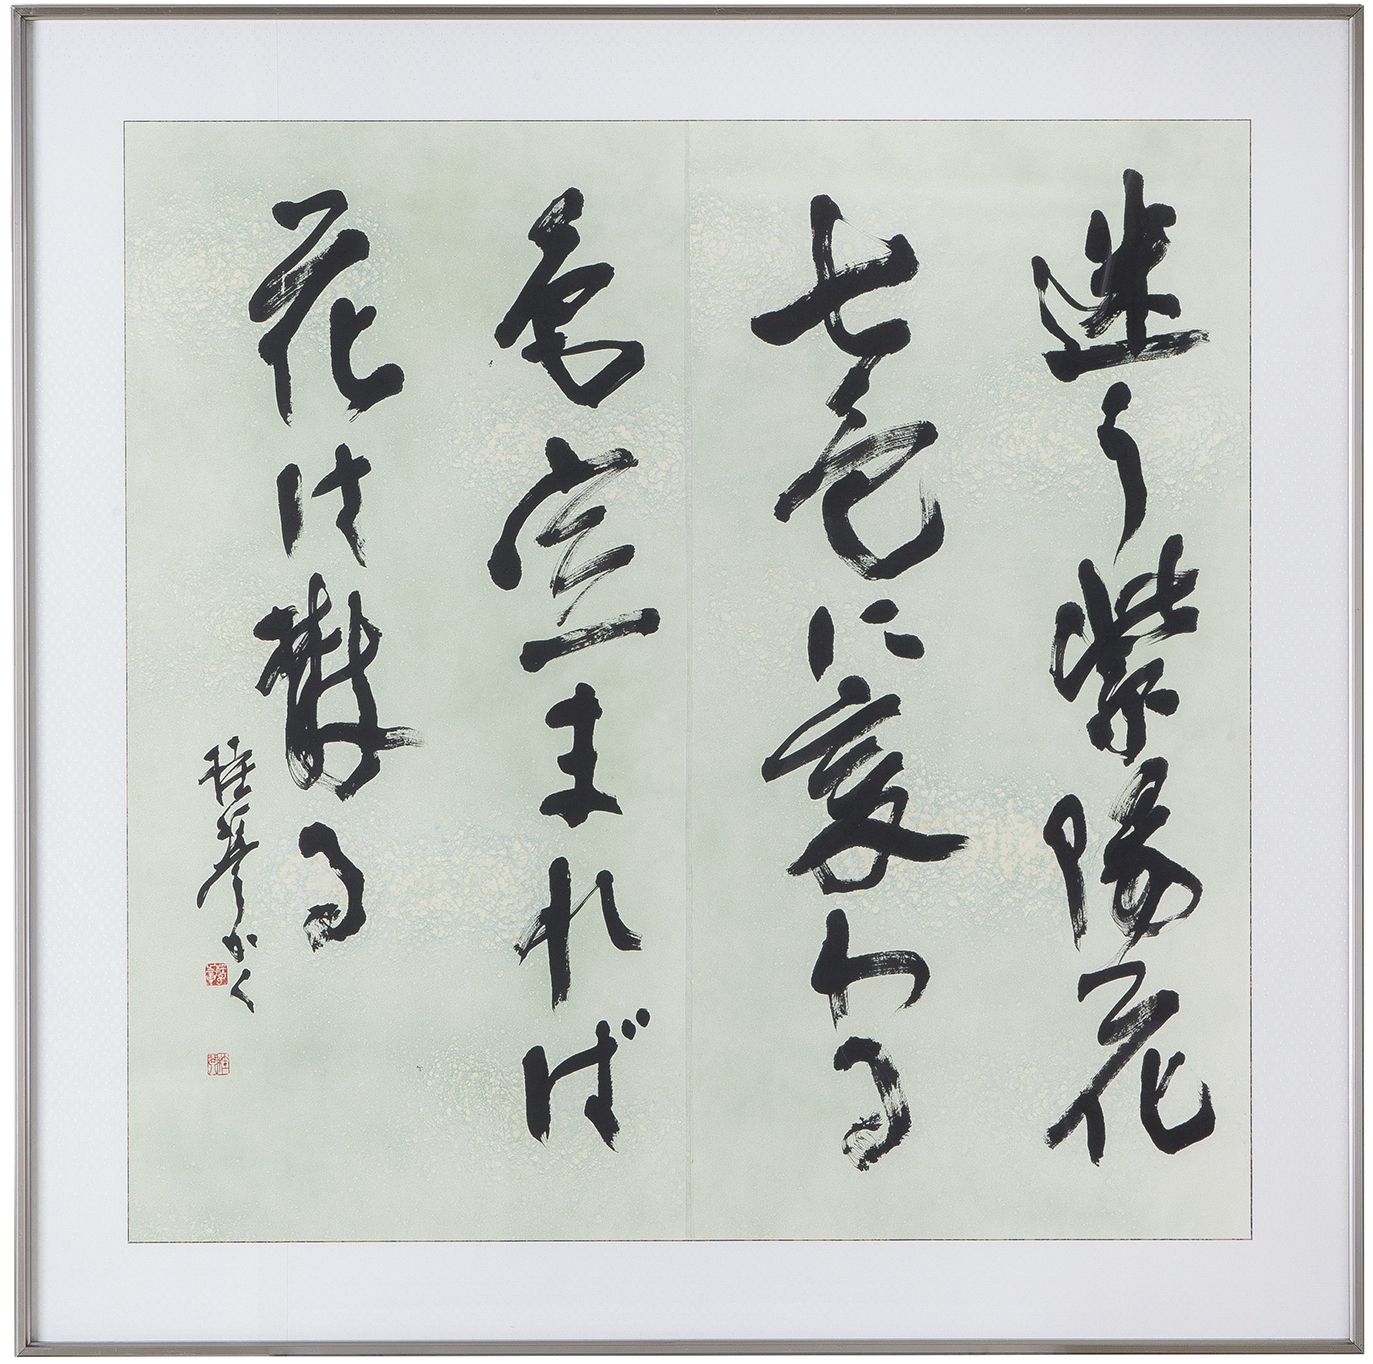 迷う紫陽花
七色に変わる
色定まれば
花は散る
かく